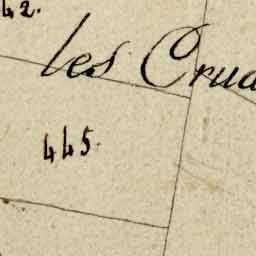 42.
les Crud
445.